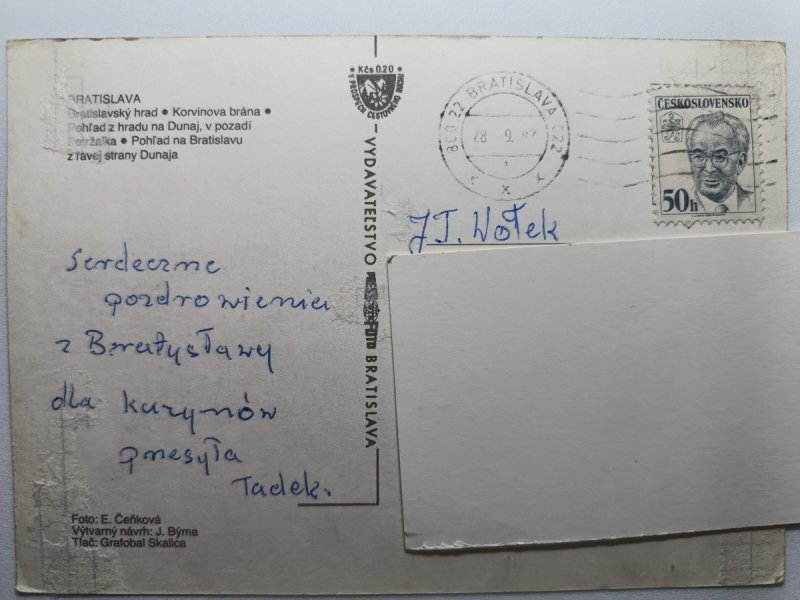 BRATISLAVA
Bratislavský hrad • Korvinova brána •
Pohľad z hradu na Dunaj, v pozadí
Petržalka • Pohľad na Bratislavu
z ľavej strany Dunaja
Serdeczne
pozdrowienia
z Bratysławy
dla kuzynów
przesyła
Tadek.
Foto: E. Čeňková
Výtvarný návrh: J. Býma
Tlač: Grafobal Skalica
Kčs 0.20
V PROSPECH CESTOVNÉHO RUCHU
VYDAVATEĽSTVO
BRATISLAVA
BRATISLAVA 022
28. 9.
ČESKOSLOVENSKO
50h
J.T. Wołek